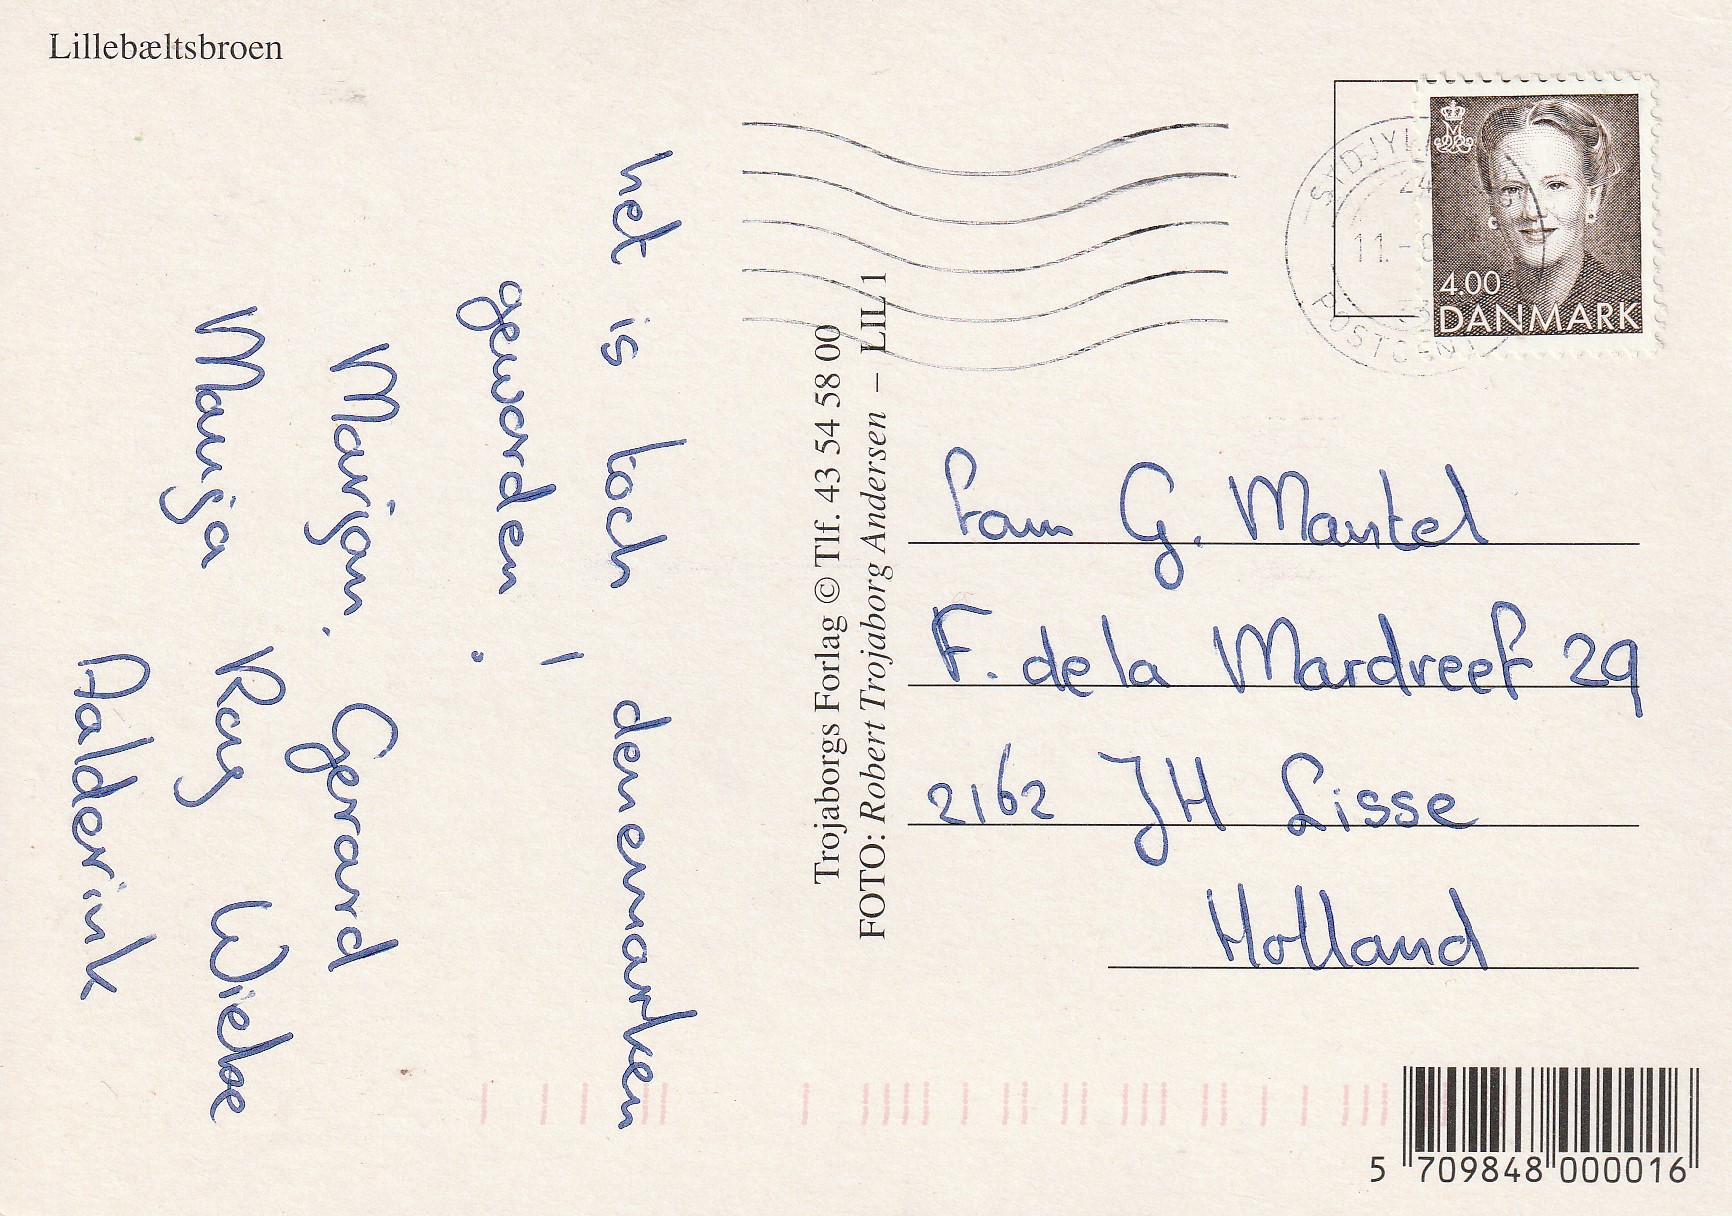 Lillebæltsbroen
het is toch denemarken
geworden !
Marjan. Gerard
Manja Roy Wiebe
Aalderink
Trojaborgs Forlag © Tlf. 43 54 58 00
FOTO: Robert Trojaborg Andersen – LIL 1
SYDJYL
24
11.-8
POSTCEN
4.00
DANMARK
Fam G. Mantel
F. de la Mardreef 29
2162 JH Lisse
Holland
5 709848 000016